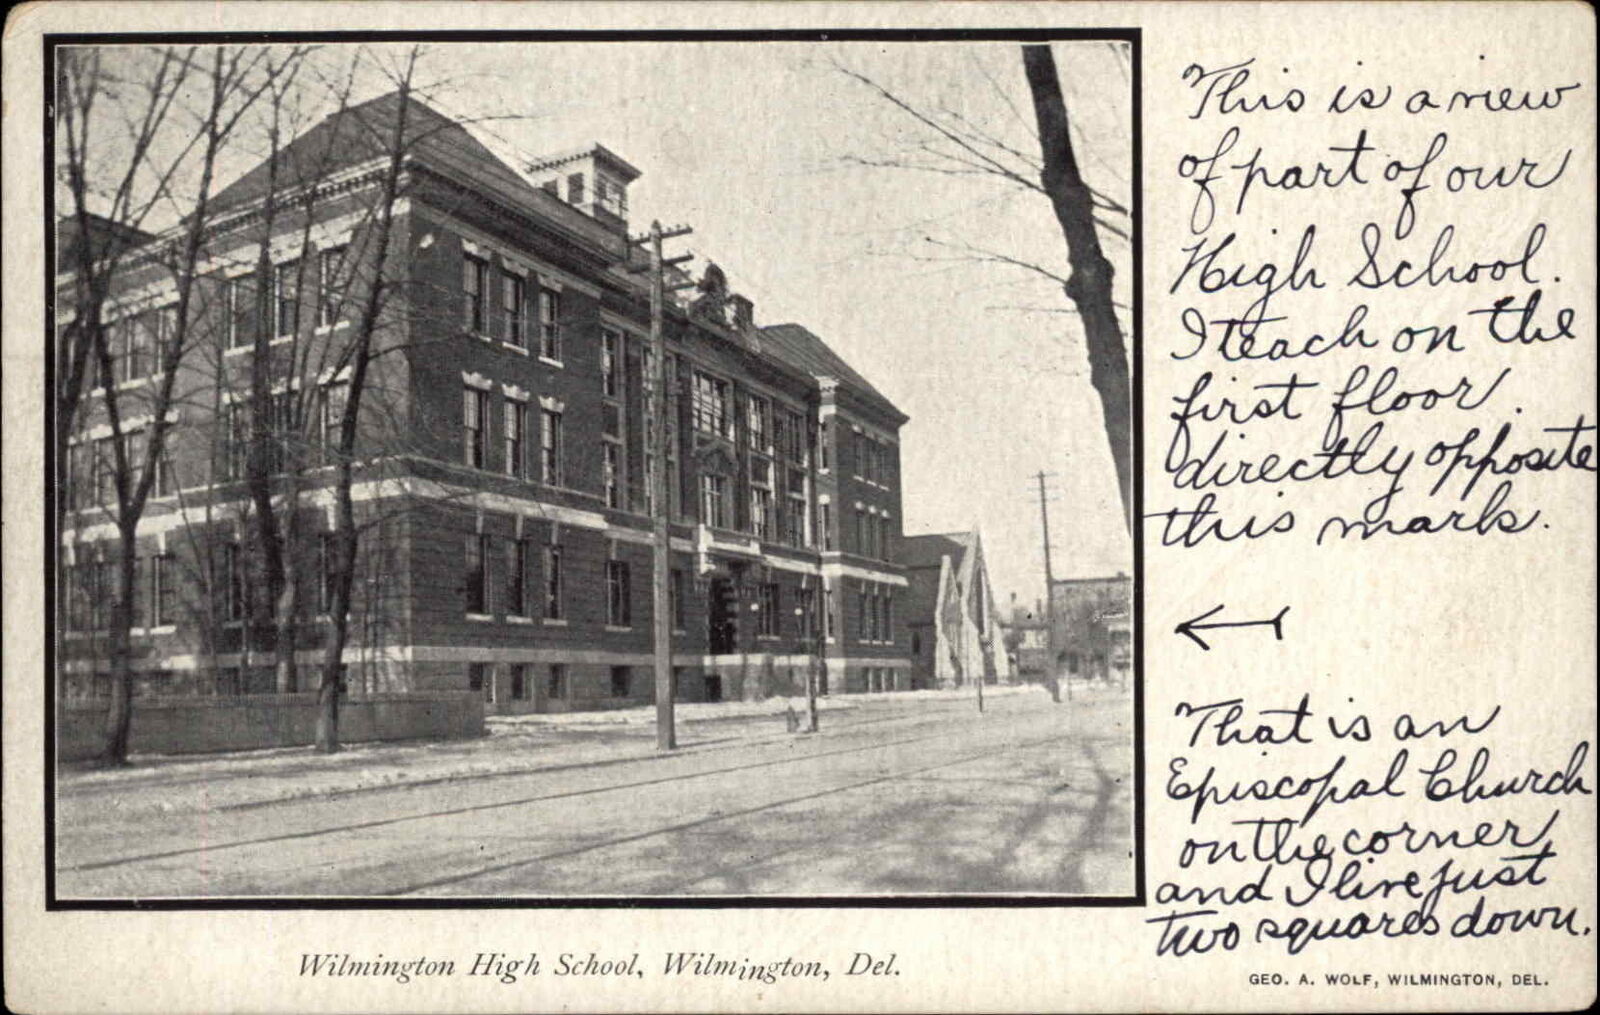 This is a view
of part of our
High School.
I teach on the
first floor.
directly opposite
this mark.
That is an
Episcopal Church
on the corner
and I live just
two squares down.
Wilmington High School, Wilmington, Del.
GEO. A. WOLF, WILMINGTON, DEL.